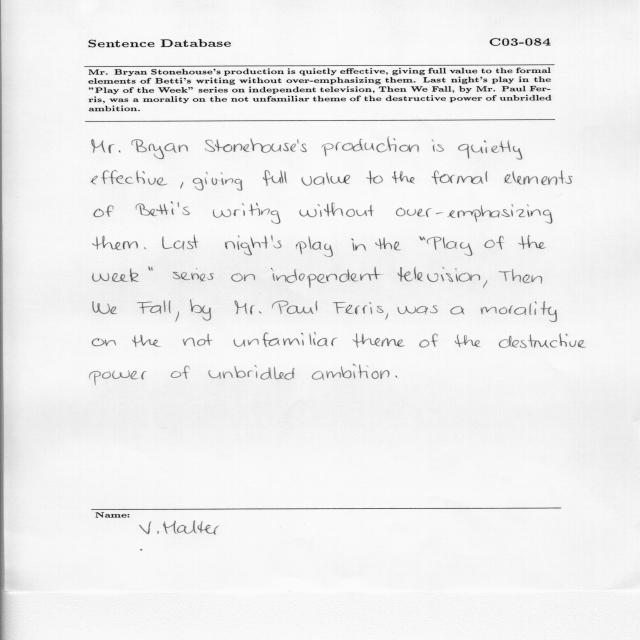 Sentence Database C03-084
Mr. Bryan Stonehouse's production is quietly effective, giving full value to the formal
elements of Betti's writing without over-emphasizing them. Last night's play in the
"Play of the Week" series on independent television, Then We Fall, by Mr. Paul Fer-
ris, was a morality on the not unfamiliar theme of the destructive power of unbridled
ambition.
Mr. Bryan Stonehouse's production is quietly
effective, giving full value to the formal elements
of Betti's writing without over-emphasizing
them. Last night's play in the "Play of the
week" series on independent television, Then
We Fall, by Mr. Paul Ferris, was a morality
on the not unfamiliar theme of the destructive
power of unbridled ambition.
Name:
V. Malter